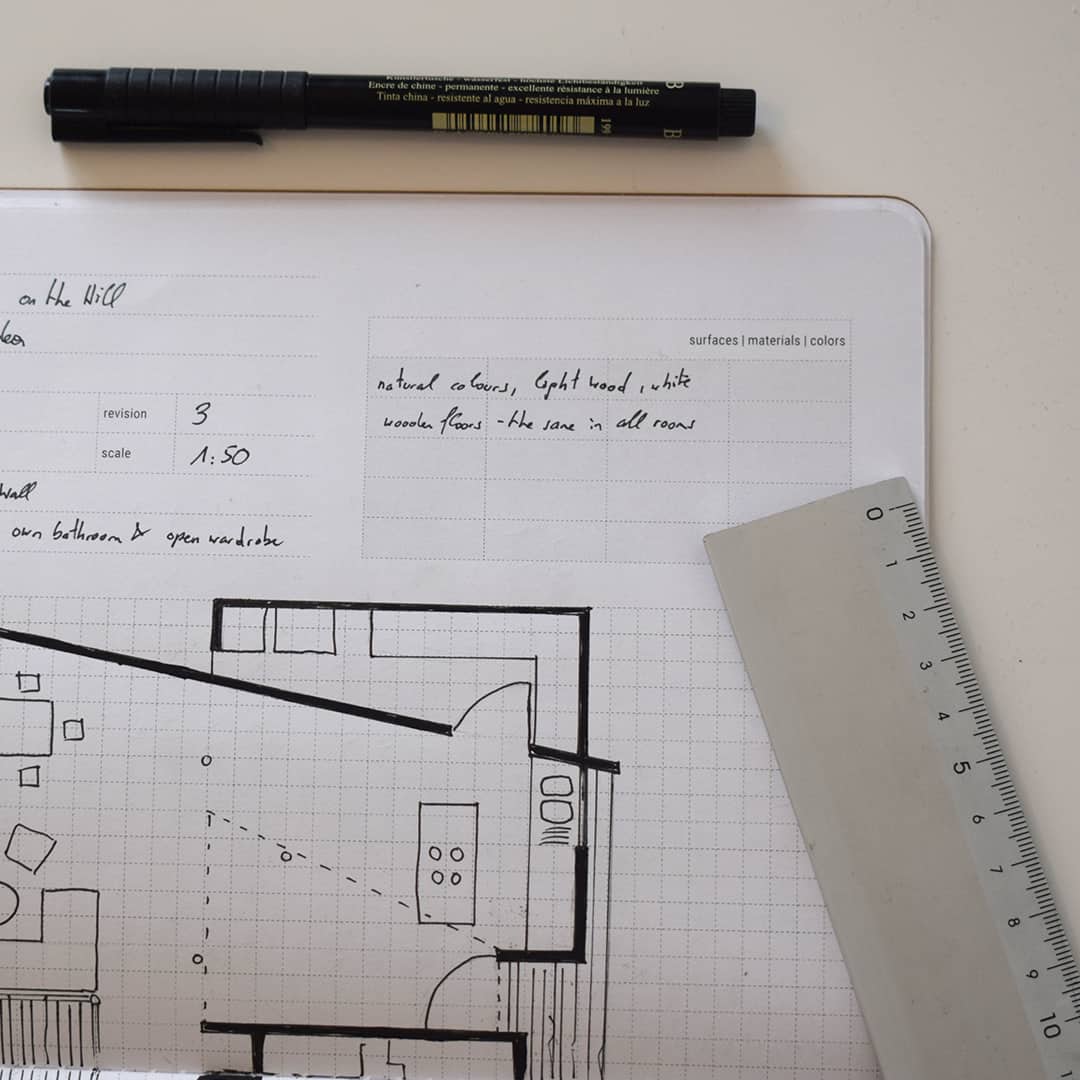 Künstlertusche - wasserfest - höchste Lichtbeständigkeit
Encre de chine - permanente - excellente résistance à la lumière
Tinta china - resistente al agua - resistencia máxima a la luz
199
B
B
on the Hill
surfaces | materials | colors
natural colours, light wood, white
revision 3
wooden floors - the same in all rooms
scale 1:50
wall
own bathroom & open wardrobe
0
1
2
3
4
5
6
7
8
9
10